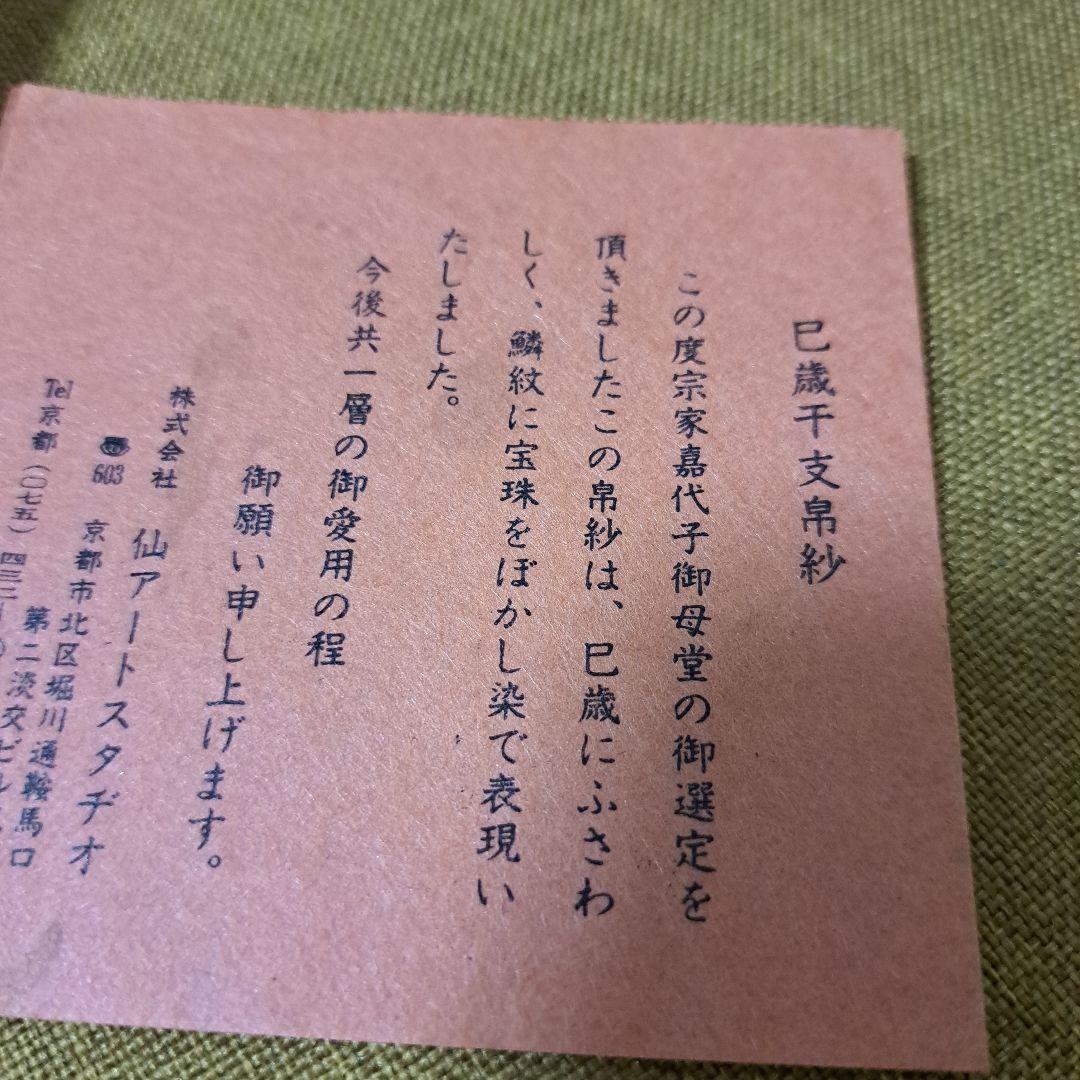 巳歳干支帛紗
この度宗家嘉代子御母堂の御選定を
頂きましたこの帛紗は、巳歳にふさわ
しく、鱗紋に宝珠をぼかし染で表現い
たしました。
今後共一層の御愛用の程
御願い申し上げます。
株式会社 仙アートスタヂオ
〠603 京都市北区堀川通鞍馬口
第二淡交ビル
Tel京都(〇七五)四三一